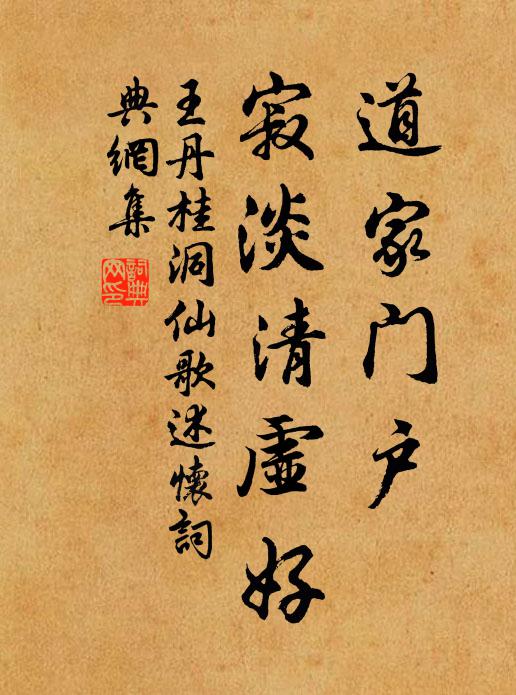 道家门户
寂淡清虚好
王丹桂洞仙歌述懷詞
典網集
詞典
网印